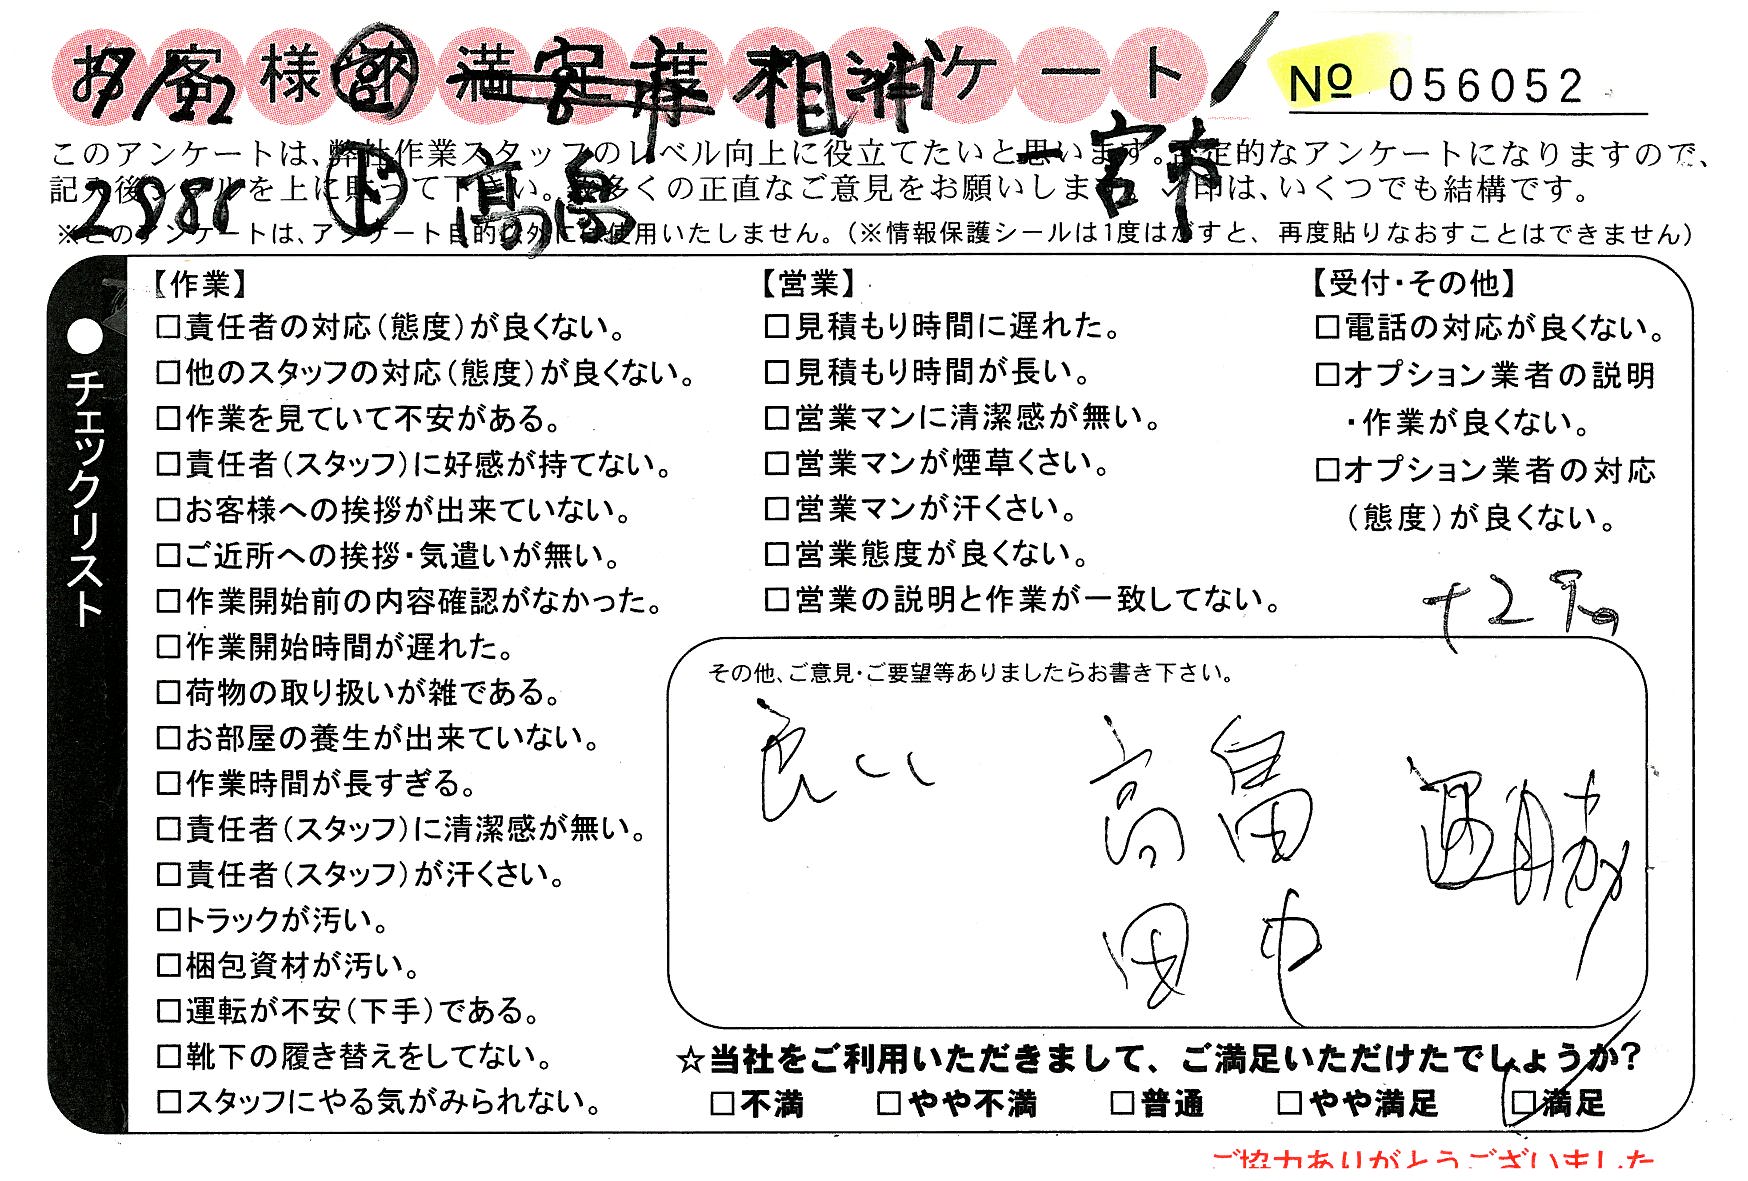 お客様満足度アンケート
No 056052
9/22 相浦
このアンケートは、弊社作業スタッフのレベル向上に役立てたいと思います。否定的なアンケートになりますので、
一宮市
記入後シールを上に貼って下さい。数多くの正直なご意見をお願いします。レ印は、いくつでも結構です。
2886 ド 高畠
※このアンケートは、アンケート目的以外には使用いたしません。(※情報保護シールは1度はがすと、再度貼りなおすことはできません)
●チェックリスト
【作業】
□責任者の対応(態度)が良くない。
□他のスタッフの対応(態度)が良くない。
□作業を見ていて不安がある。
□責任者(スタッフ)に好感が持てない。
□お客様への挨拶が出来ていない。
□ご近所への挨拶・気遣いが無い。
□作業開始前の内容確認がなかった。
□作業開始時間が遅れた。
□荷物の取り扱いが雑である。
□お部屋の養生が出来ていない。
□作業時間が長すぎる。
□責任者(スタッフ)に清潔感が無い。
□責任者(スタッフ)が汗くさい。
□トラックが汚い。
□梱包資材が汚い。
□運転が不安(下手)である。
□靴下の履き替えをしてない。
□スタッフにやる気がみられない。
【営業】
□見積もり時間に遅れた。
□見積もり時間が長い。
□営業マンに清潔感が無い。
□営業マンが煙草くさい。
□営業マンが汗くさい。
□営業態度が良くない。
□営業の説明と作業が一致してない。
【受付・その他】
□電話の対応が良くない。
□オプション業者の説明
・作業が良くない。
□オプション業者の対応
(態度)が良くない。
その他、ご意見・ご要望等ありましたらお書き下さい。
良い 高畠 運勝
田中
☆当社をご利用いただきまして、ご満足いただけたでしょうか?
□不満 □やや不満 □普通 □やや満足 □満足
ご協力ありがとうございました